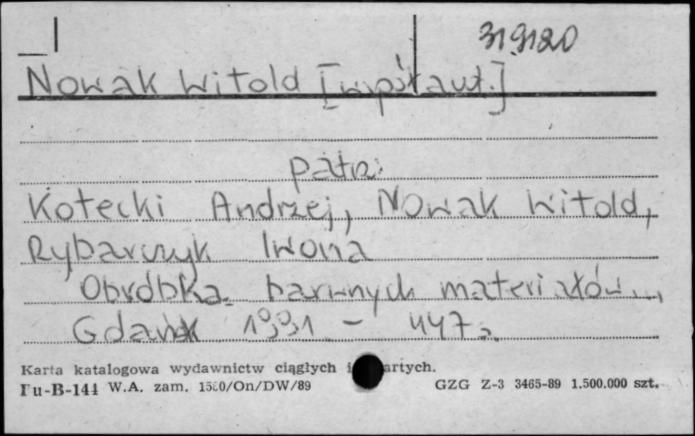 319120
Nowak Witold [współaut.]
patrz:
Kotecki Andrzej, Nowak Witold,
Rybarczyk Iwona
Obróbka barwnych materiałów...,
Gdańsk 1991 - 447
Karta katalogowa wydawnictw ciągłych i artych.
Pu-B-144 W.A. zam. 1580/On/DW/89 GZG Z-3 3465-89 1.500.000 szt.